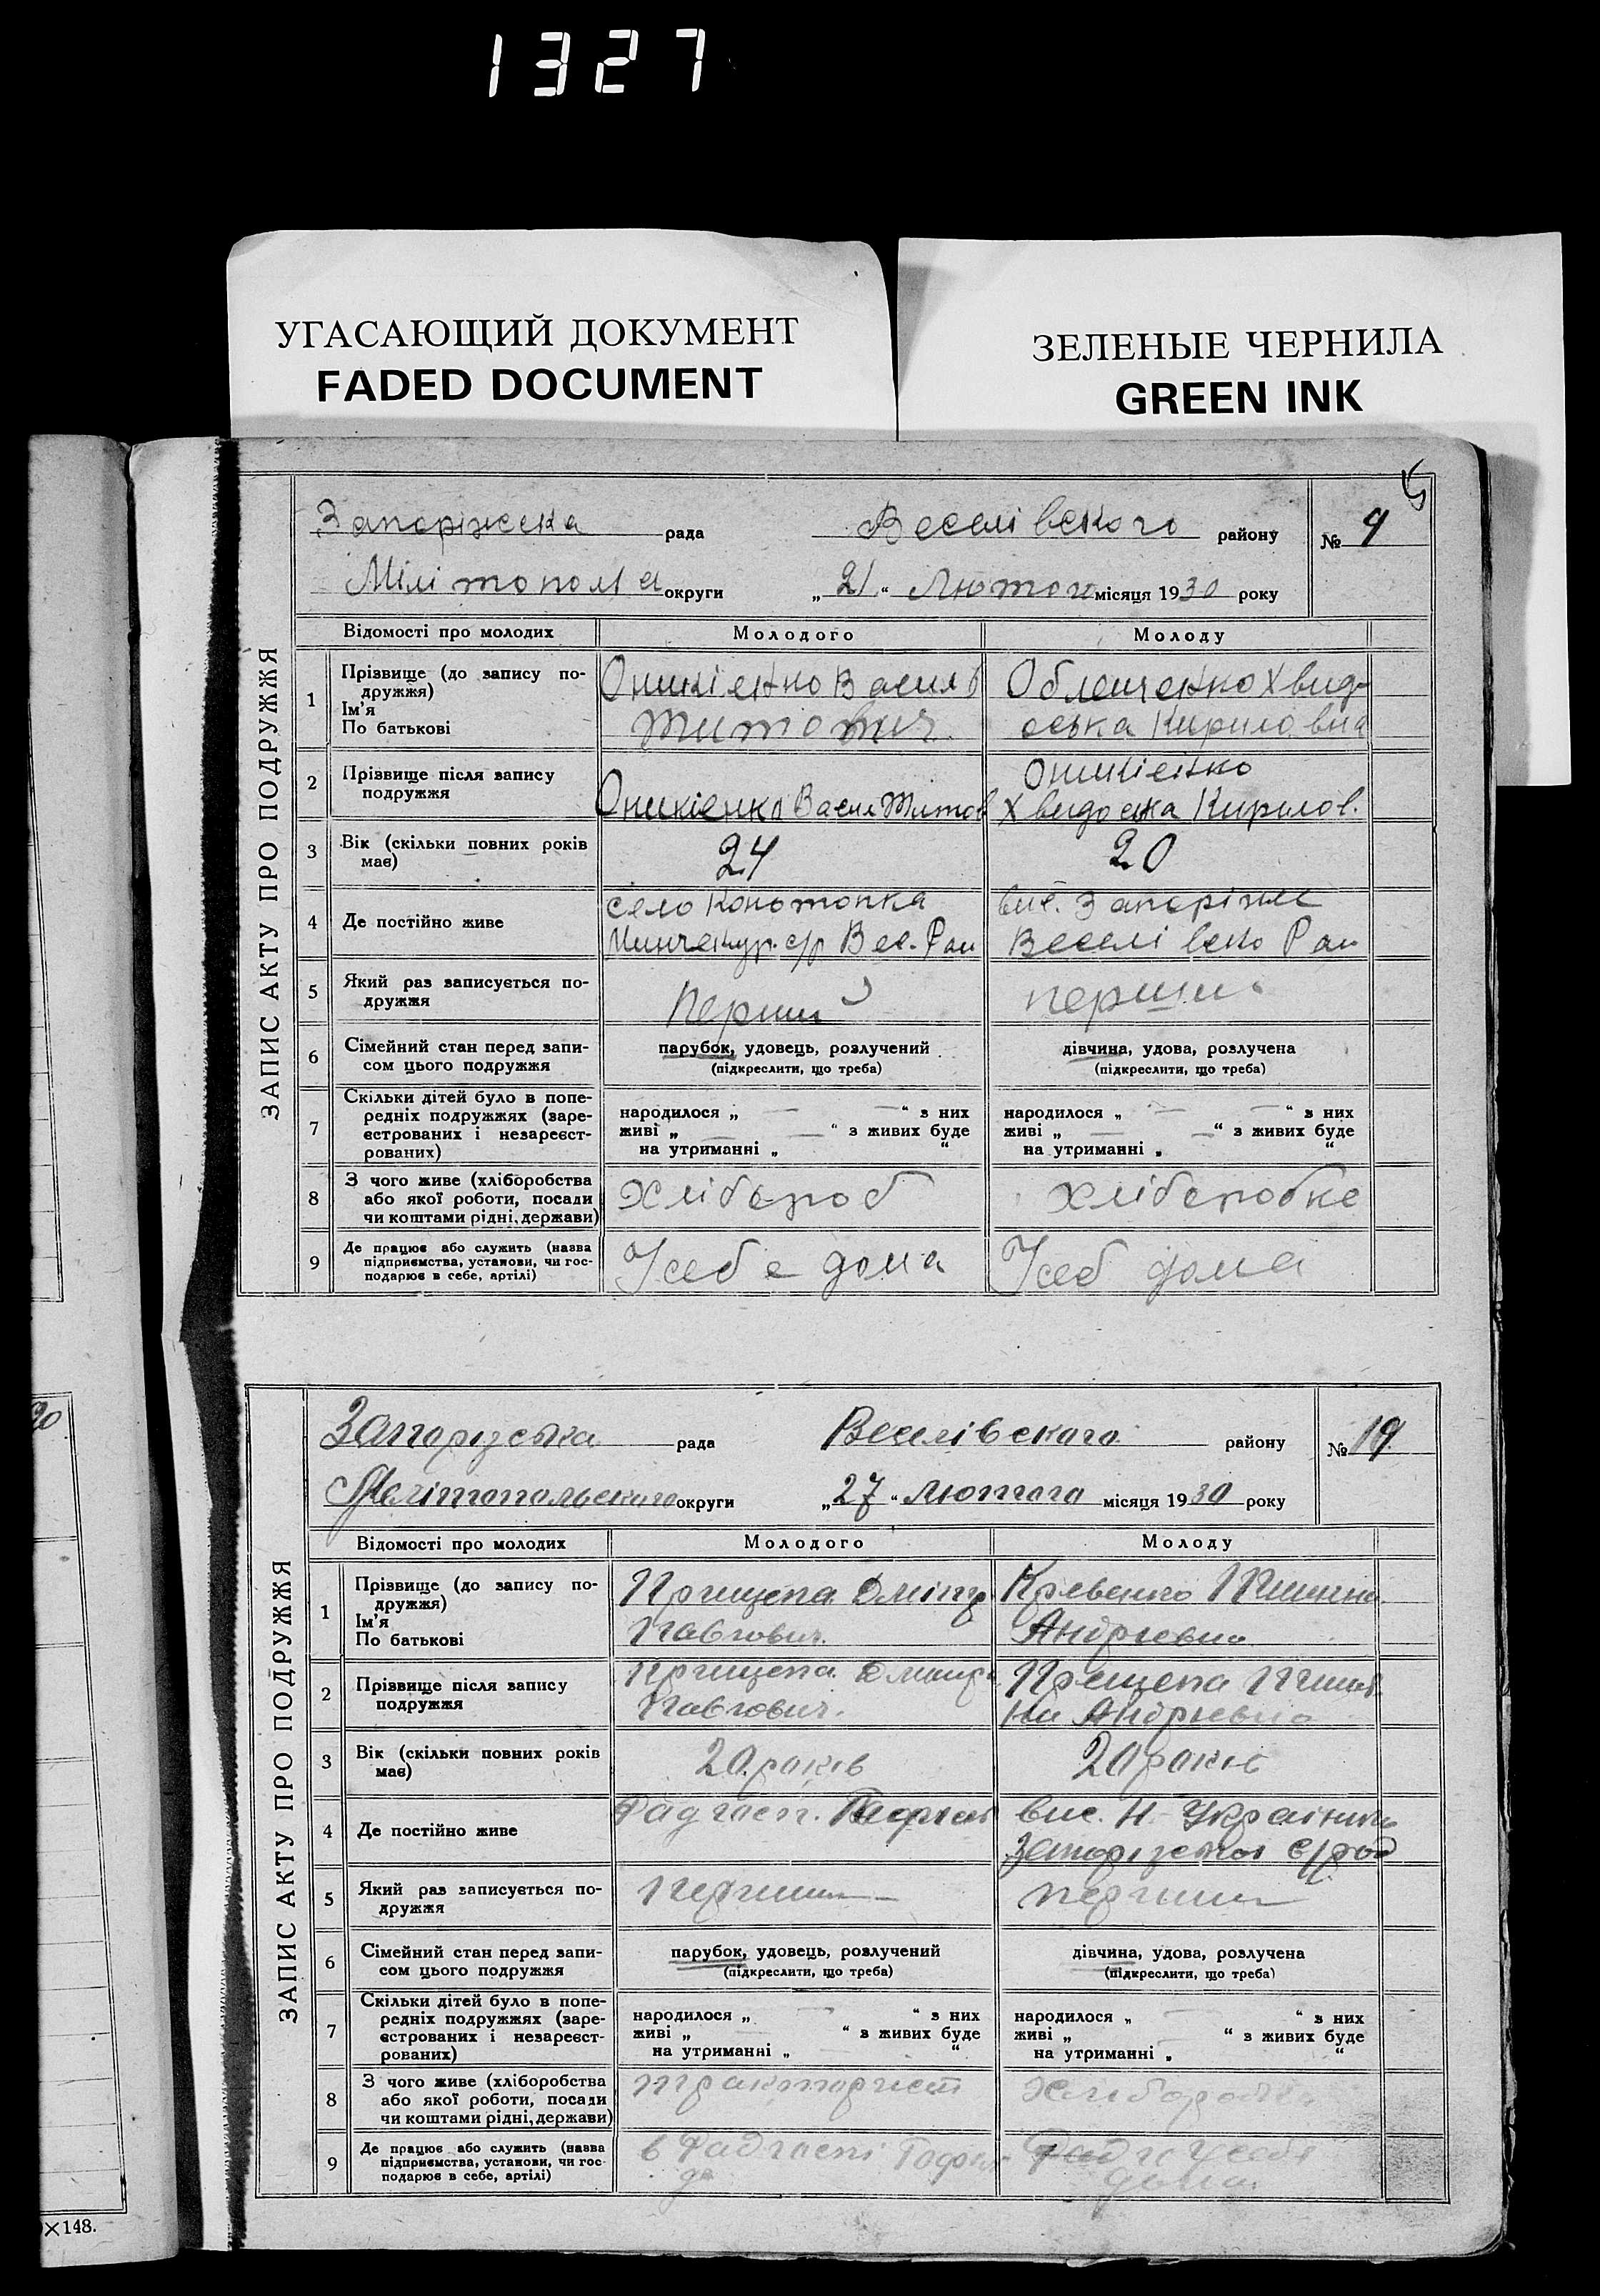 1327
УГАСАЮЩИЙ ДОКУМЕНТ
FADED DOCUMENT
ЗЕЛЕНЫЕ ЧЕРНИЛА
GREEN INK
ЗАПИС АКТУ ПРО ПОДРУЖЖЯ
Запоріжська рада Веселівского району № 9
Мілітопольа округи „21“ Лютого місяця 1930 року
Відомості про молодих Молодого Молоду
1 Прізвище (до запису по-
дружжя)
Ім'я
По батькові
Оникіенко Василь
Титович
Облещенко Хвидо
оська Кириловна
2 Прізвище після запису
подружжя
Оникіенко Васил Титов
Оникіенко
Хвидоська Кирилов.
3 Вік (скільки повних років
має)
24
20
4 Де постійно живе
село Конотопка
с/р Вес. Рай
вис. Запоріжс
Веселівско Рай
5 Який раз записується по-
дружжя
Перший
перший
6 Сімейний стан перед запи-
сом цього подружжя
парубок, удовець, розлучений
(підкреслити, що треба)
дівчина, удова, розлучена
(підкреслити, що треба)
7 Скільки дітей було в попе-
редніх подружжях (заре-
єстрованих і незареєст-
рованих)
народилося „ — — “ з них
живі „ — — “ з живих буде
на утриманні „ “
народилося „ — — “ з них
живі „ — — “ з живих буде
на утриманні „ “
8 З чого живе (хліборобства
або якої роботи, посади
чи коштами рідні, держави)
Хлібероб
хліберобке
9 Де працює або служить (назва
підприємства, установи, чи гос-
подарює в себе, артілі)
Усебе дома
Усеб дома
ЗАПИС АКТУ ПРО ПОДРУЖЖЯ
Запорізська рада Веселівского району № 19
Мелітопольского округи „27“ Лютого місяця 1930 року
Відомості про молодих Молодого Молоду
1 Прізвище (до запису по-
дружжя)
Ім'я
По батькові
Прищепа Дмітр
Павлович
Кревенко
Андріевна
2 Прізвище після запису
подружжя
Прищепа
Павлович.
Прещепа
на Андріевна
3 Вік (скільки повних років
має)
20 років
20 років
4 Де постійно живе
Радгосп.
вис. Н-
Запорізской с/рад
5 Який раз записується по-
дружжя
перший
перший
6 Сімейний стан перед запи-
сом цього подружжя
парубок, удовець, розлучений
(підкреслити, що треба)
дівчина, удова, розлучена
(підкреслити, що треба)
7 Скільки дітей було в попе-
редніх подружжях (заре-
єстрованих і незареєст-
рованих)
народилося „ — “ з них
живі „ “ з живих буде
на утриманні „ “
народилося „ — “ з них
живі „ — “ з живих буде
на утриманні „ “
8 З чого живе (хліборобства
або якої роботи, посади
чи коштами рідні, держави)
тракторист
9 Де працює або служить (назва
підприємства, установи, чи гос-
подарює в себе, артілі)
в Радгоспі
дома
×148.